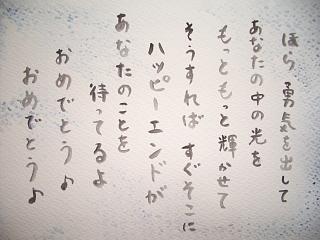 ほら 勇気を出して
あなたの中の光を
もっともっと輝かせて
そうすれば すぐそこに
ハッピーエンドが
あなたのことを
待ってるよ
おめでとう♪
おめでとう♪